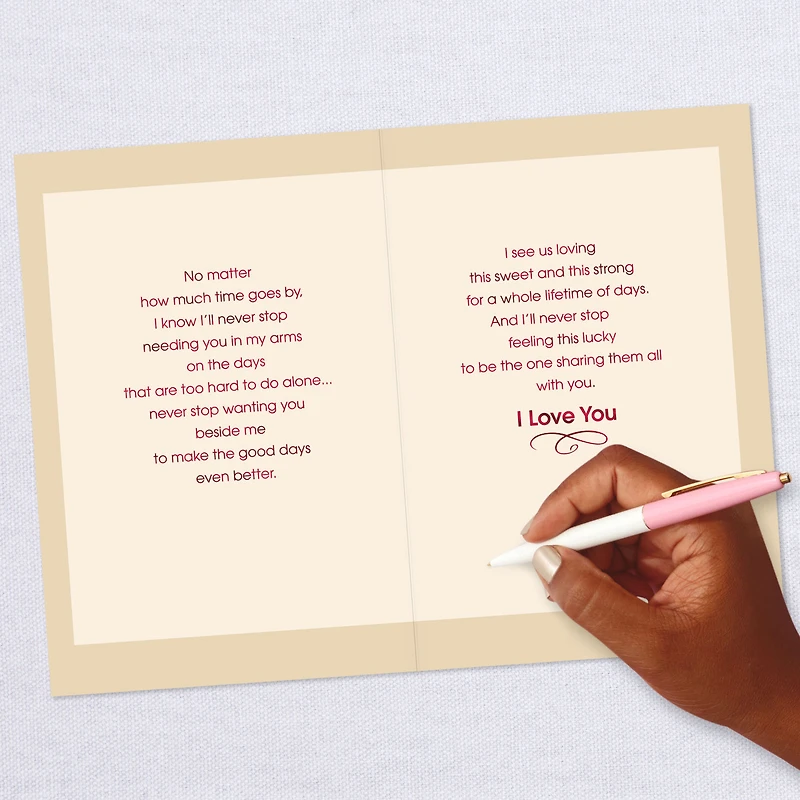 No matter
how much time goes by,
I know I'll never stop
needing you in my arms
on the days
that are too hard to do alone...
never stop wanting you
beside me
to make the good days
even better.
I see us loving
this sweet and this strong
for a whole lifetime of days.
And I'll never stop
feeling this lucky
to be the one sharing them all
with you.
I Love You